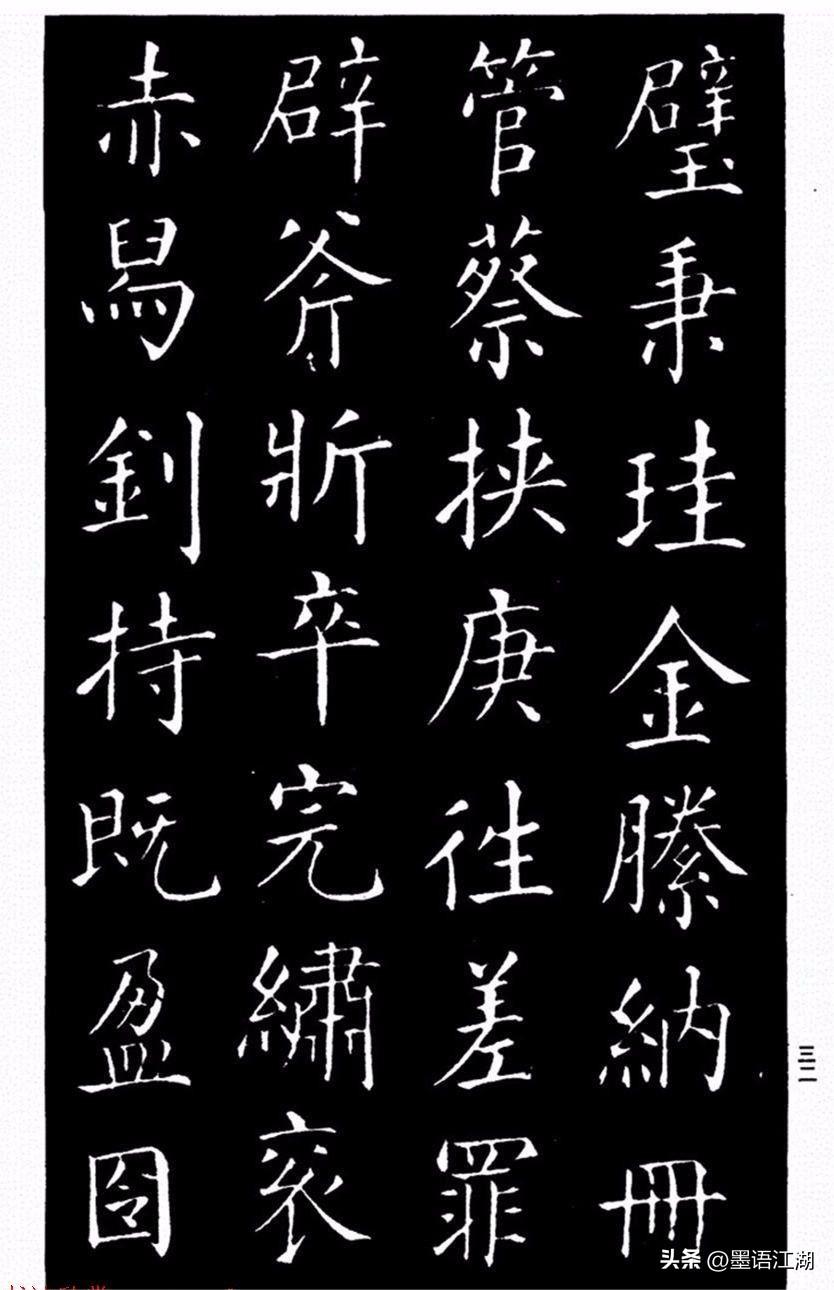 璧秉珪金縢納冊
管蔡挟庚徃差罪
辟斧斨卒完繡衮
赤舄釗持既盈囹
三二
头条 @墨语江湖